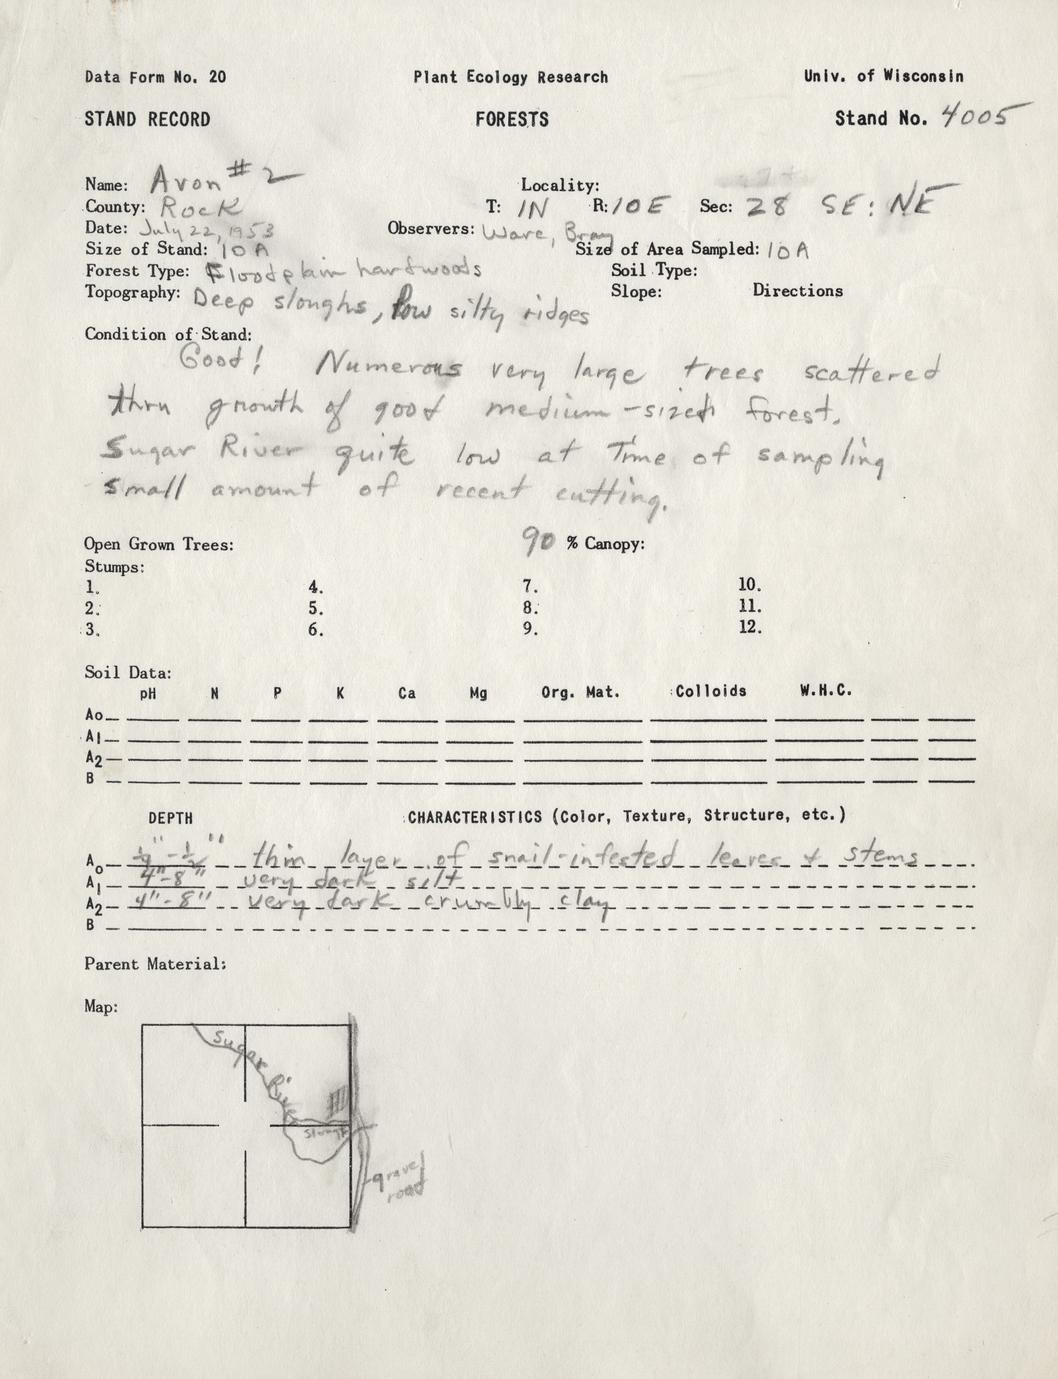 Data Form No. 20 Plant Ecology Research Univ. of Wisconsin
STAND RECORD FORESTS Stand No. 4005
Name: Avon #2 Locality:
County: Rock T: 1N R: 10E Sec: 28 SE: NE
Date: July 22, 1953 Observers: Ware, Bray
Size of Stand: 10A Size of Area Sampled: 10A
Forest Type: Floodplain hardwoods Soil Type:
Topography: Deep sloughs, low silty ridges Slope: Directions
Condition of Stand:
Good! Numerous very large trees scattered
thru growth of good medium-sized forest.
Sugar River quite low at time of sampling
small amount of recent cutting.
Open Grown Trees: 90 % Canopy:
Stumps:
1. 4. 7. 10.
2. 5. 8. 11.
3. 6. 9. 12.
Soil Data:
pH N P K Ca Mg Org. Mat. Colloids W.H.C.
Ao
A1
A2
B
DEPTH CHARACTERISTICS (Color, Texture, Structure, etc.)
Ao thin layer of snail-infested leaves & stems
A1 4"-8" very dark silt
A2 4"-8" very dark crumbly clay
B
Parent Material:
Map:
Sugar River
Slough
gravel
road